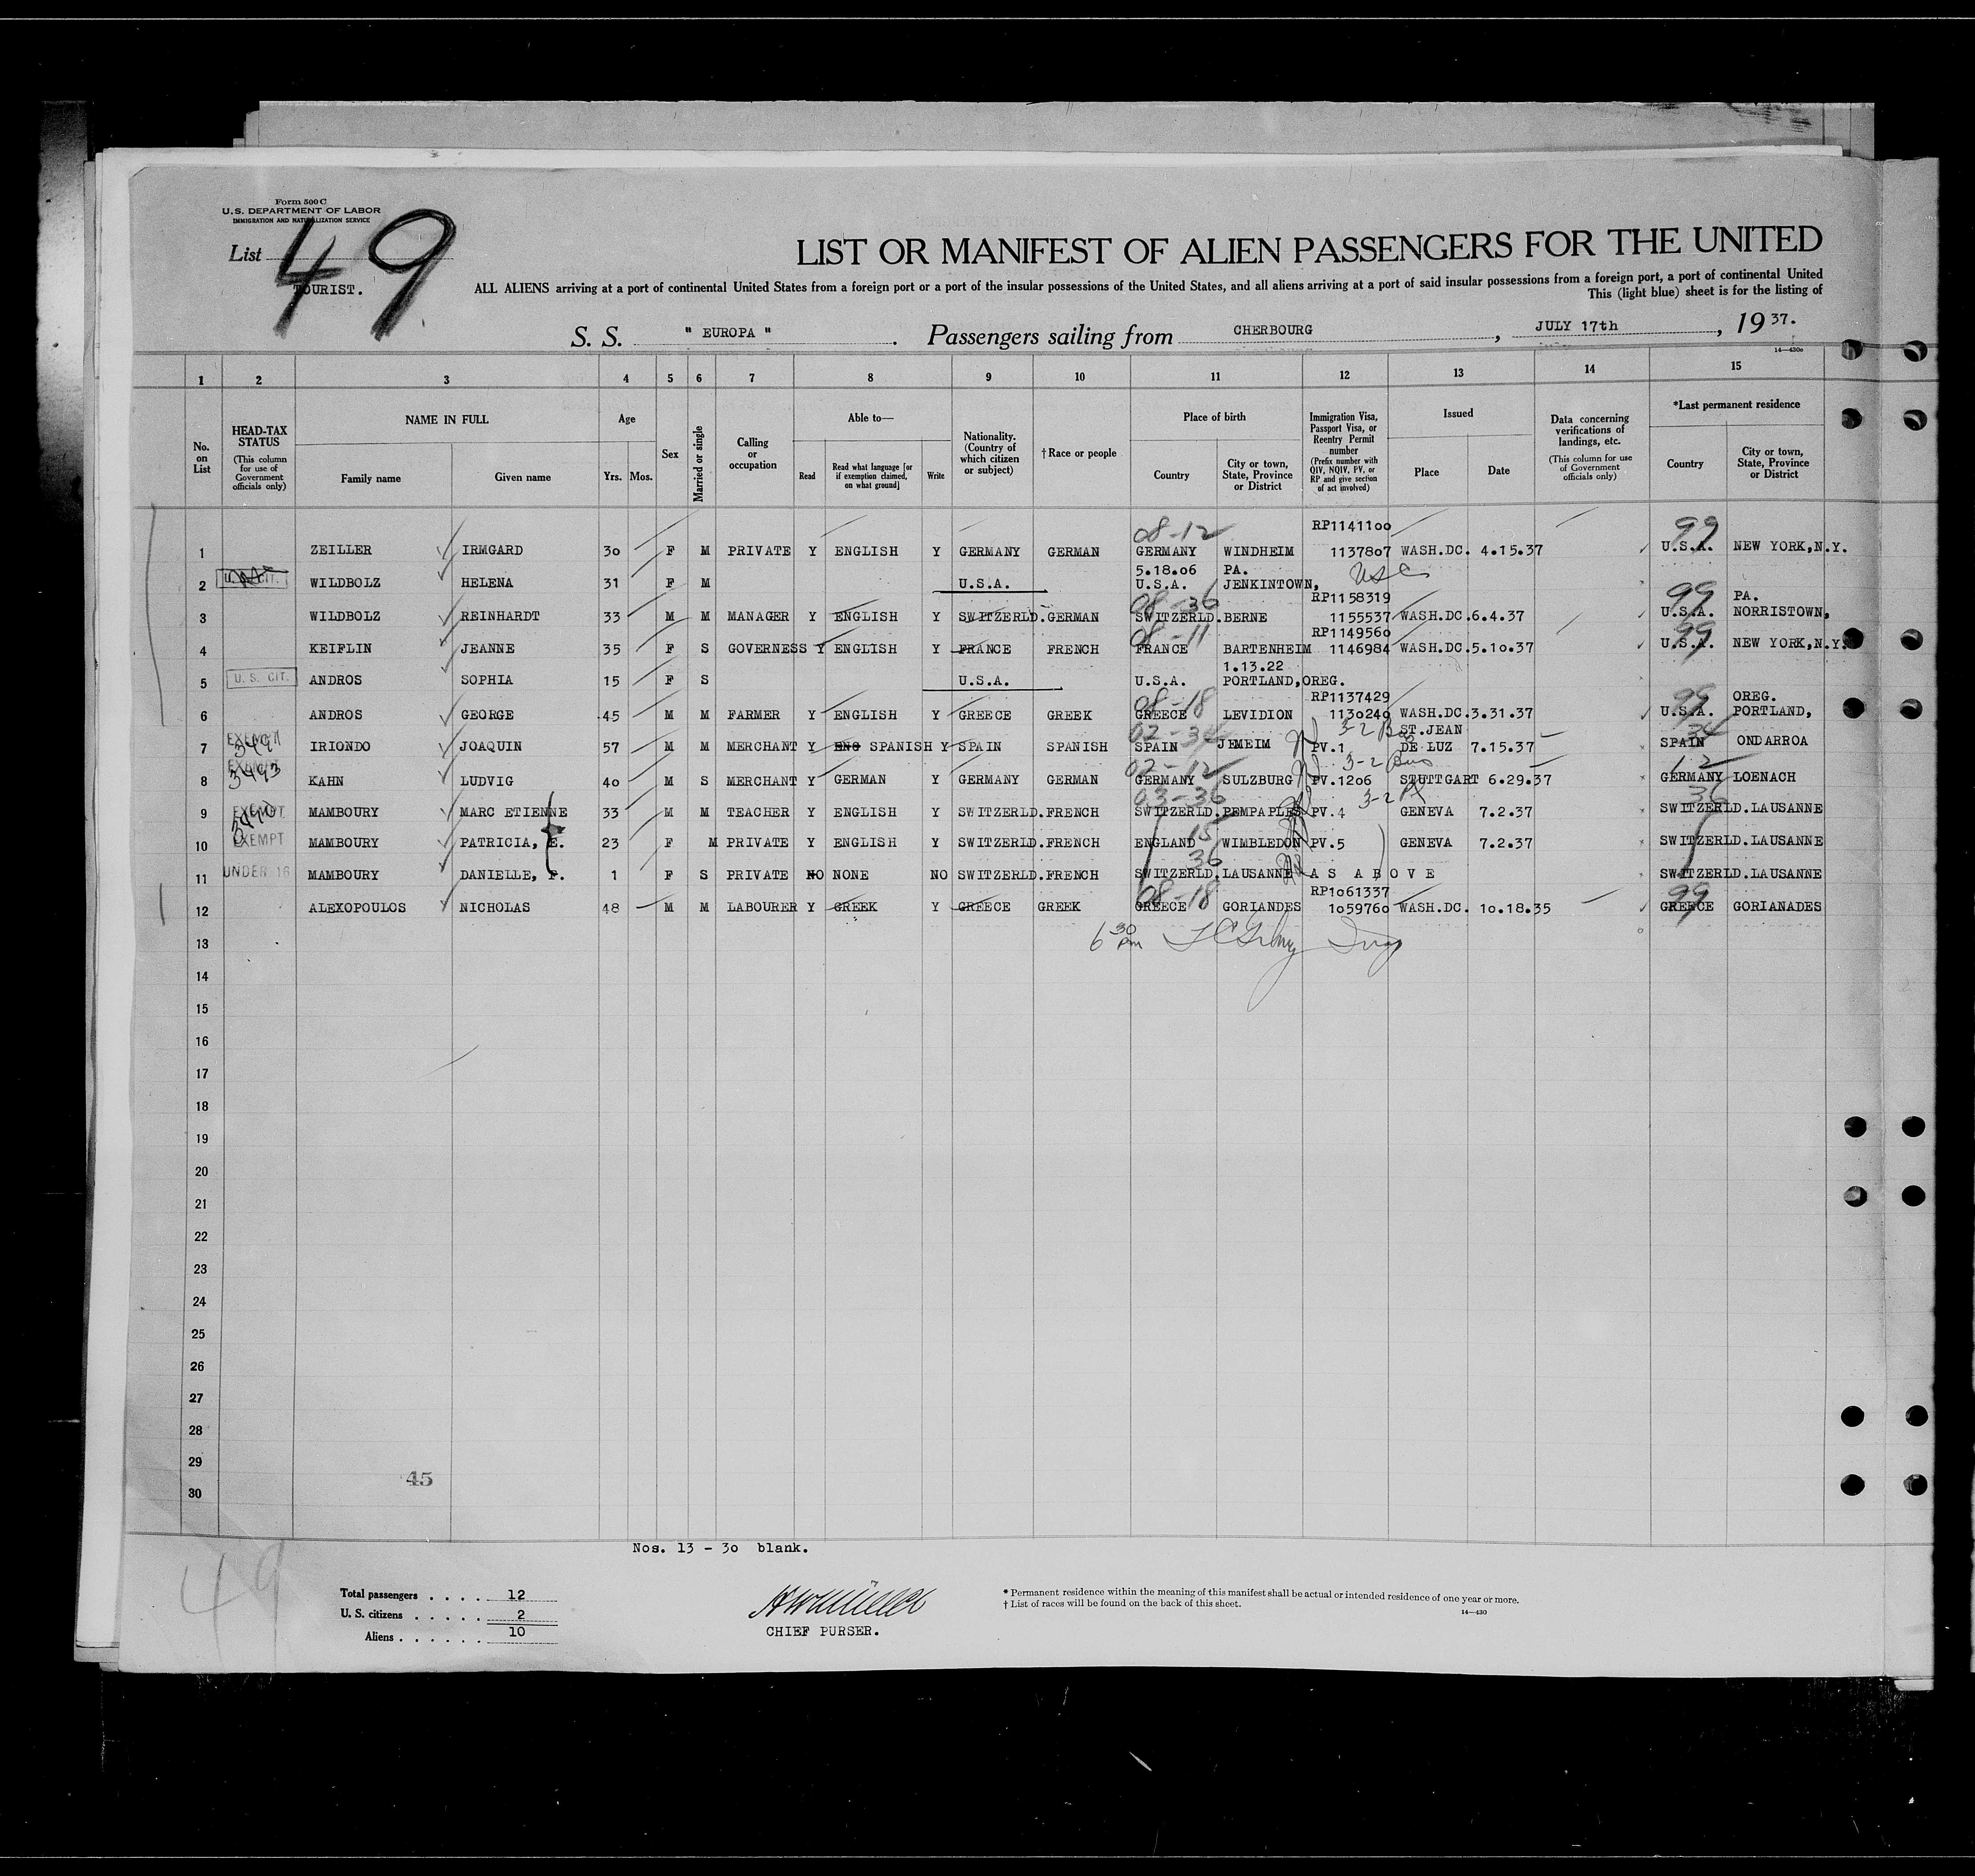 Form 500 C
U.S. DEPARTMENT OF LABOR
IMMIGRATION AND NATURALIZATION SERVICE
List 49
TOURIST.
LIST OR MANIFEST OF ALIEN PASSENGERS FOR THE UNITED
ALL ALIENS arriving at a port of continental United States from a foreign port or a port of the insular possessions of the United States, and all aliens arriving at a port of said insular possessions from a foreign port, a port of continental United
This (light blue) sheet is for the listing of
S. S. " EUROPA ". Passengers sailing from CHERBOURG, JULY 17th, 19 37.
14—430c
1 2 3 4 5 6 7 8 9 10 11 12 13 14 15
No. on List
HEAD-TAX STATUS (This column for use of Government officials only)
NAME IN FULL Family name Given name
Age Yrs. Mos.
Sex
Married or single
Calling or occupation
Able to— Read Read what language [or if exemption claimed, on what ground] Write
Nationality. (Country of which citizen or subject)
†Race or people
Place of birth Country City or town, State, Province or District
Immigration Visa, Passport Visa, or Reentry Permit number (Prefix number with QIV, NQIV, PV, or RP and give section of act involved)
Issued Place Date
Data concerning verifications of landings, etc. (This column for use of Government officials only)
*Last permanent residence Country City or town, State, Province or District
08-12 RP1141100 99
1 ZEILLER IRMGARD 30 F M PRIVATE Y ENGLISH Y GERMANY GERMAN GERMANY WINDHEIM 1137807 WASH.DC. 4.15.37 U.S.A. NEW YORK,N.Y.
5.18.06 PA.
2 U.S. CIT. WILDBOLZ HELENA 31 F M U.S.A. U.S.A. JENKINTOWN, USC
08-36 RP1158319 99 PA.
3 WILDBOLZ REINHARDT 33 M M MANAGER Y ENGLISH Y SWITZERLD. GERMAN SWITZERLD. BERNE 1155537 WASH.DC. 6.4.37 U.S.A. NORRISTOWN,
08-11 RP1149560 99
4 KEIFLIN JEANNE 35 F S GOVERNESS Y ENGLISH Y FRANCE FRENCH FRANCE BARTENHEIM 1146984 WASH.DC. 5.10.37 U.S.A. NEW YORK,N.Y.
1.13.22
5 U. S. CIT. ANDROS SOPHIA 15 F S U.S.A. U.S.A. PORTLAND,OREG.
08-18 RP1137429 99 OREG.
6 ANDROS GEORGE 45 M M FARMER Y ENGLISH Y GREECE GREEK GREECE LEVIDION 1130240 WASH.DC. 3.31.37 U.S.A. PORTLAND,
EXEMPT 02-34 3-2 Bus ST.JEAN 34
7 IRIONDO JOAQUIN 57 M M MERCHANT Y ENG SPANISH Y SPAIN SPANISH SPAIN JEMEIM PV.1 DE LUZ 7.15.37 SPAIN ONDARROA
EXEMPT 3493 02-12 3-2 Bus 12
8 KAHN LUDVIG 40 M S MERCHANT Y GERMAN Y GERMANY GERMAN GERMANY SULZBURG PV.1206 STUTTGART 6.29.37 GERMANY LOENACH
EXEMPT 03-36 3-2 Pl 36
9 MAMBOURY MARC ETIENNE 33 M M TEACHER Y ENGLISH Y SWITZERLD. FRENCH SWITZERLD. PEMPAPLES PV.4 GENEVA 7.2.37 SWITZERLD. LAUSANNE
EXEMPT 15
10 MAMBOURY PATRICIA, E. 23 F M PRIVATE Y ENGLISH Y SWITZERLD. FRENCH ENGLAND WIMBLEDON PV.5 GENEVA 7.2.37 SWITZERLD. LAUSANNE
UNDER 16 36
11 MAMBOURY DANIELLE, F. 1 F S PRIVATE NO NONE NO SWITZERLD. FRENCH SWITZERLD. LAUSANNE AS ABOVE SWITZERLD. LAUSANNE
08-18 RP1061337 99
12 ALEXOPOULOS NICHOLAS 48 M M LABOURER Y GREEK Y GREECE GREEK GREECE GORIANDES 1059760 WASH.DC. 10.18.35 GREECE GORIANADES
13 6 30 pm
14
15
16
17
18
19
20
21
22
23
24
25
26
27
28
29
45
30
Nos. 13 - 30 blank.
49
Total passengers . . . . 12
U. S. citizens . . . . . 2
Aliens . . . . . . 10
CHIEF PURSER.
* Permanent residence within the meaning of this manifest shall be actual or intended residence of one year or more.
† List of races will be found on the back of this sheet.
14—430